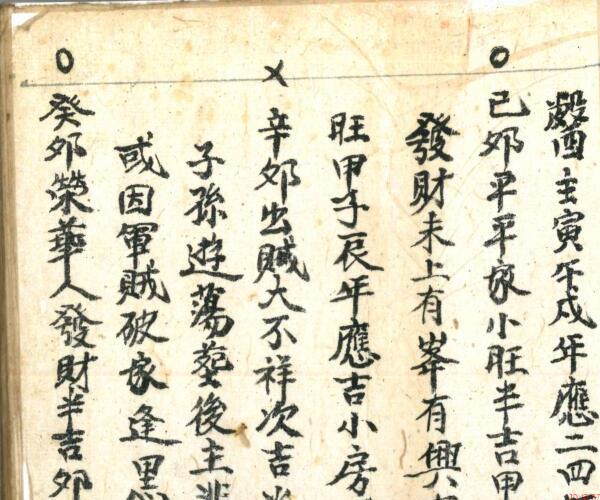 酉主寅午戍年應二四
己夘平平家小旺半吉甲
發財未上有峯有興
旺甲子辰年應吉小房
辛夘出賊大不祥次吉
子孫遊蕩塟後主
或因軍賊破家逢里
癸夘榮華人發財半吉夘